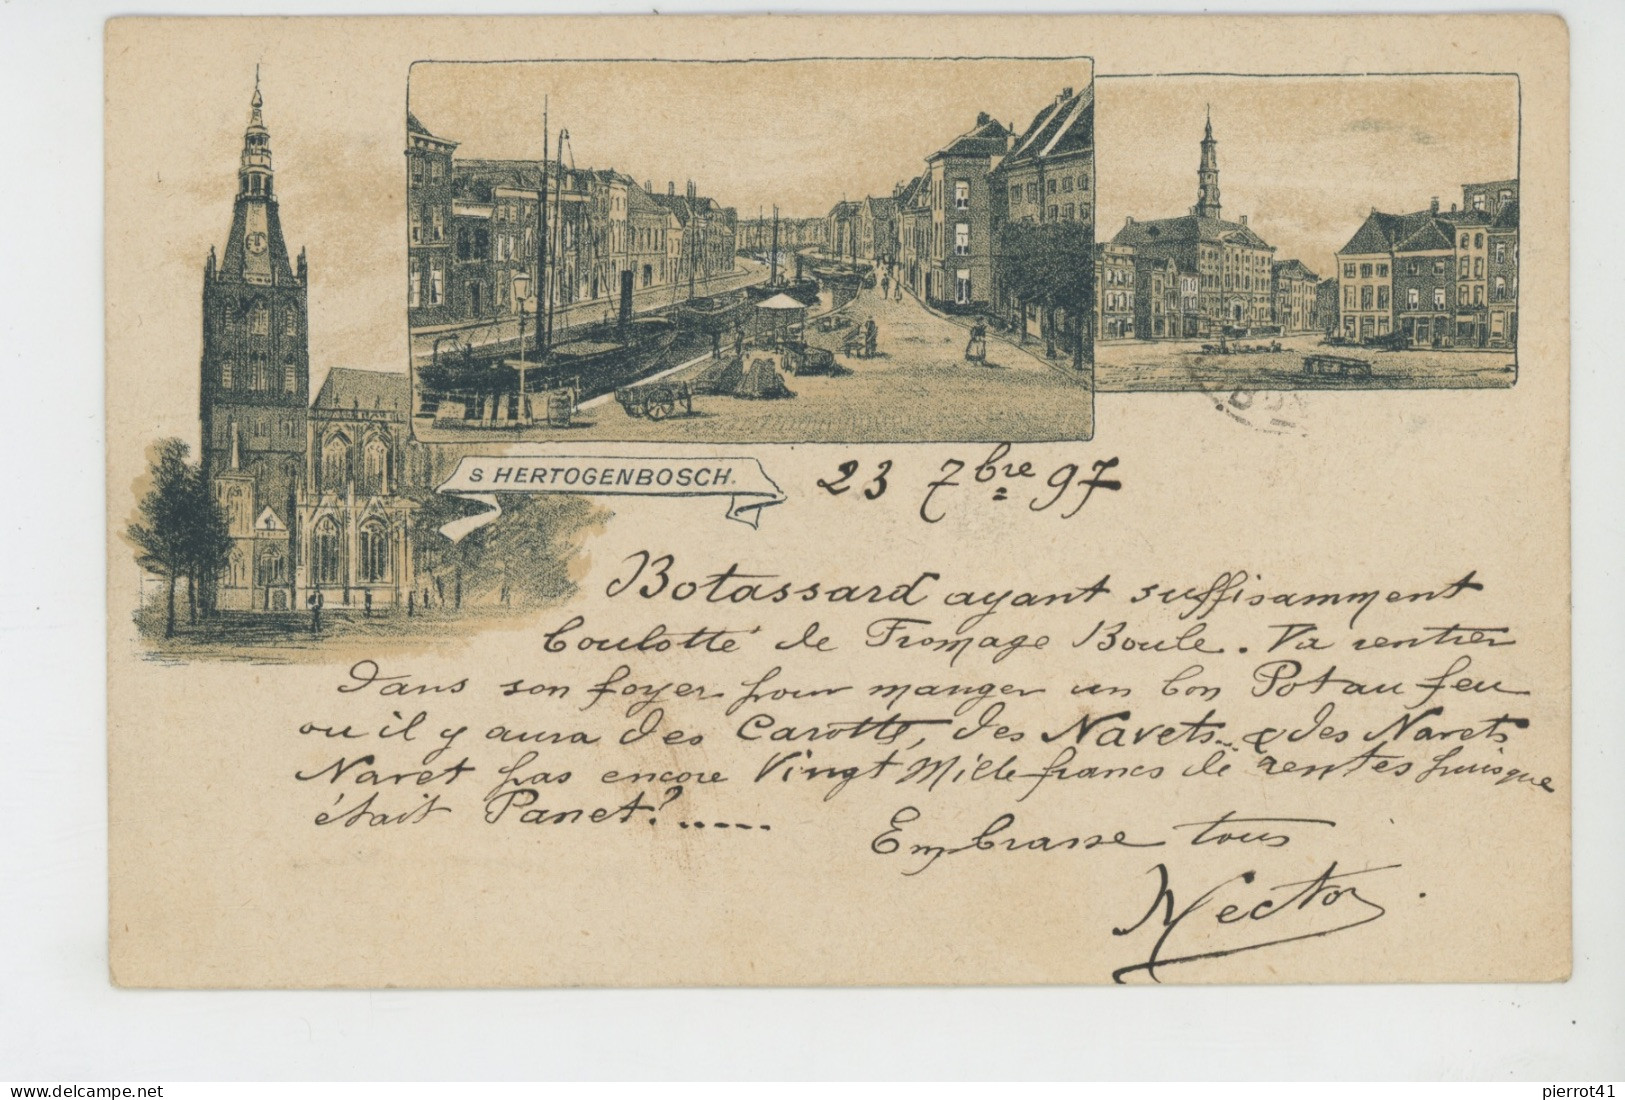 S HERTOGENBOSCH.
23 7bre 97
Botassard ayant suffisamment
boulotté de Fromage Boule. Va rentrer
dans son foyer pour manger un bon Pot au feu
ou il y aura des Carottes, des Navets... & des Navets
Navet pas encore Vingt Mille francs de rentes puisque
était Panet?.....
Embrasse tous
Hector.
pierrot41